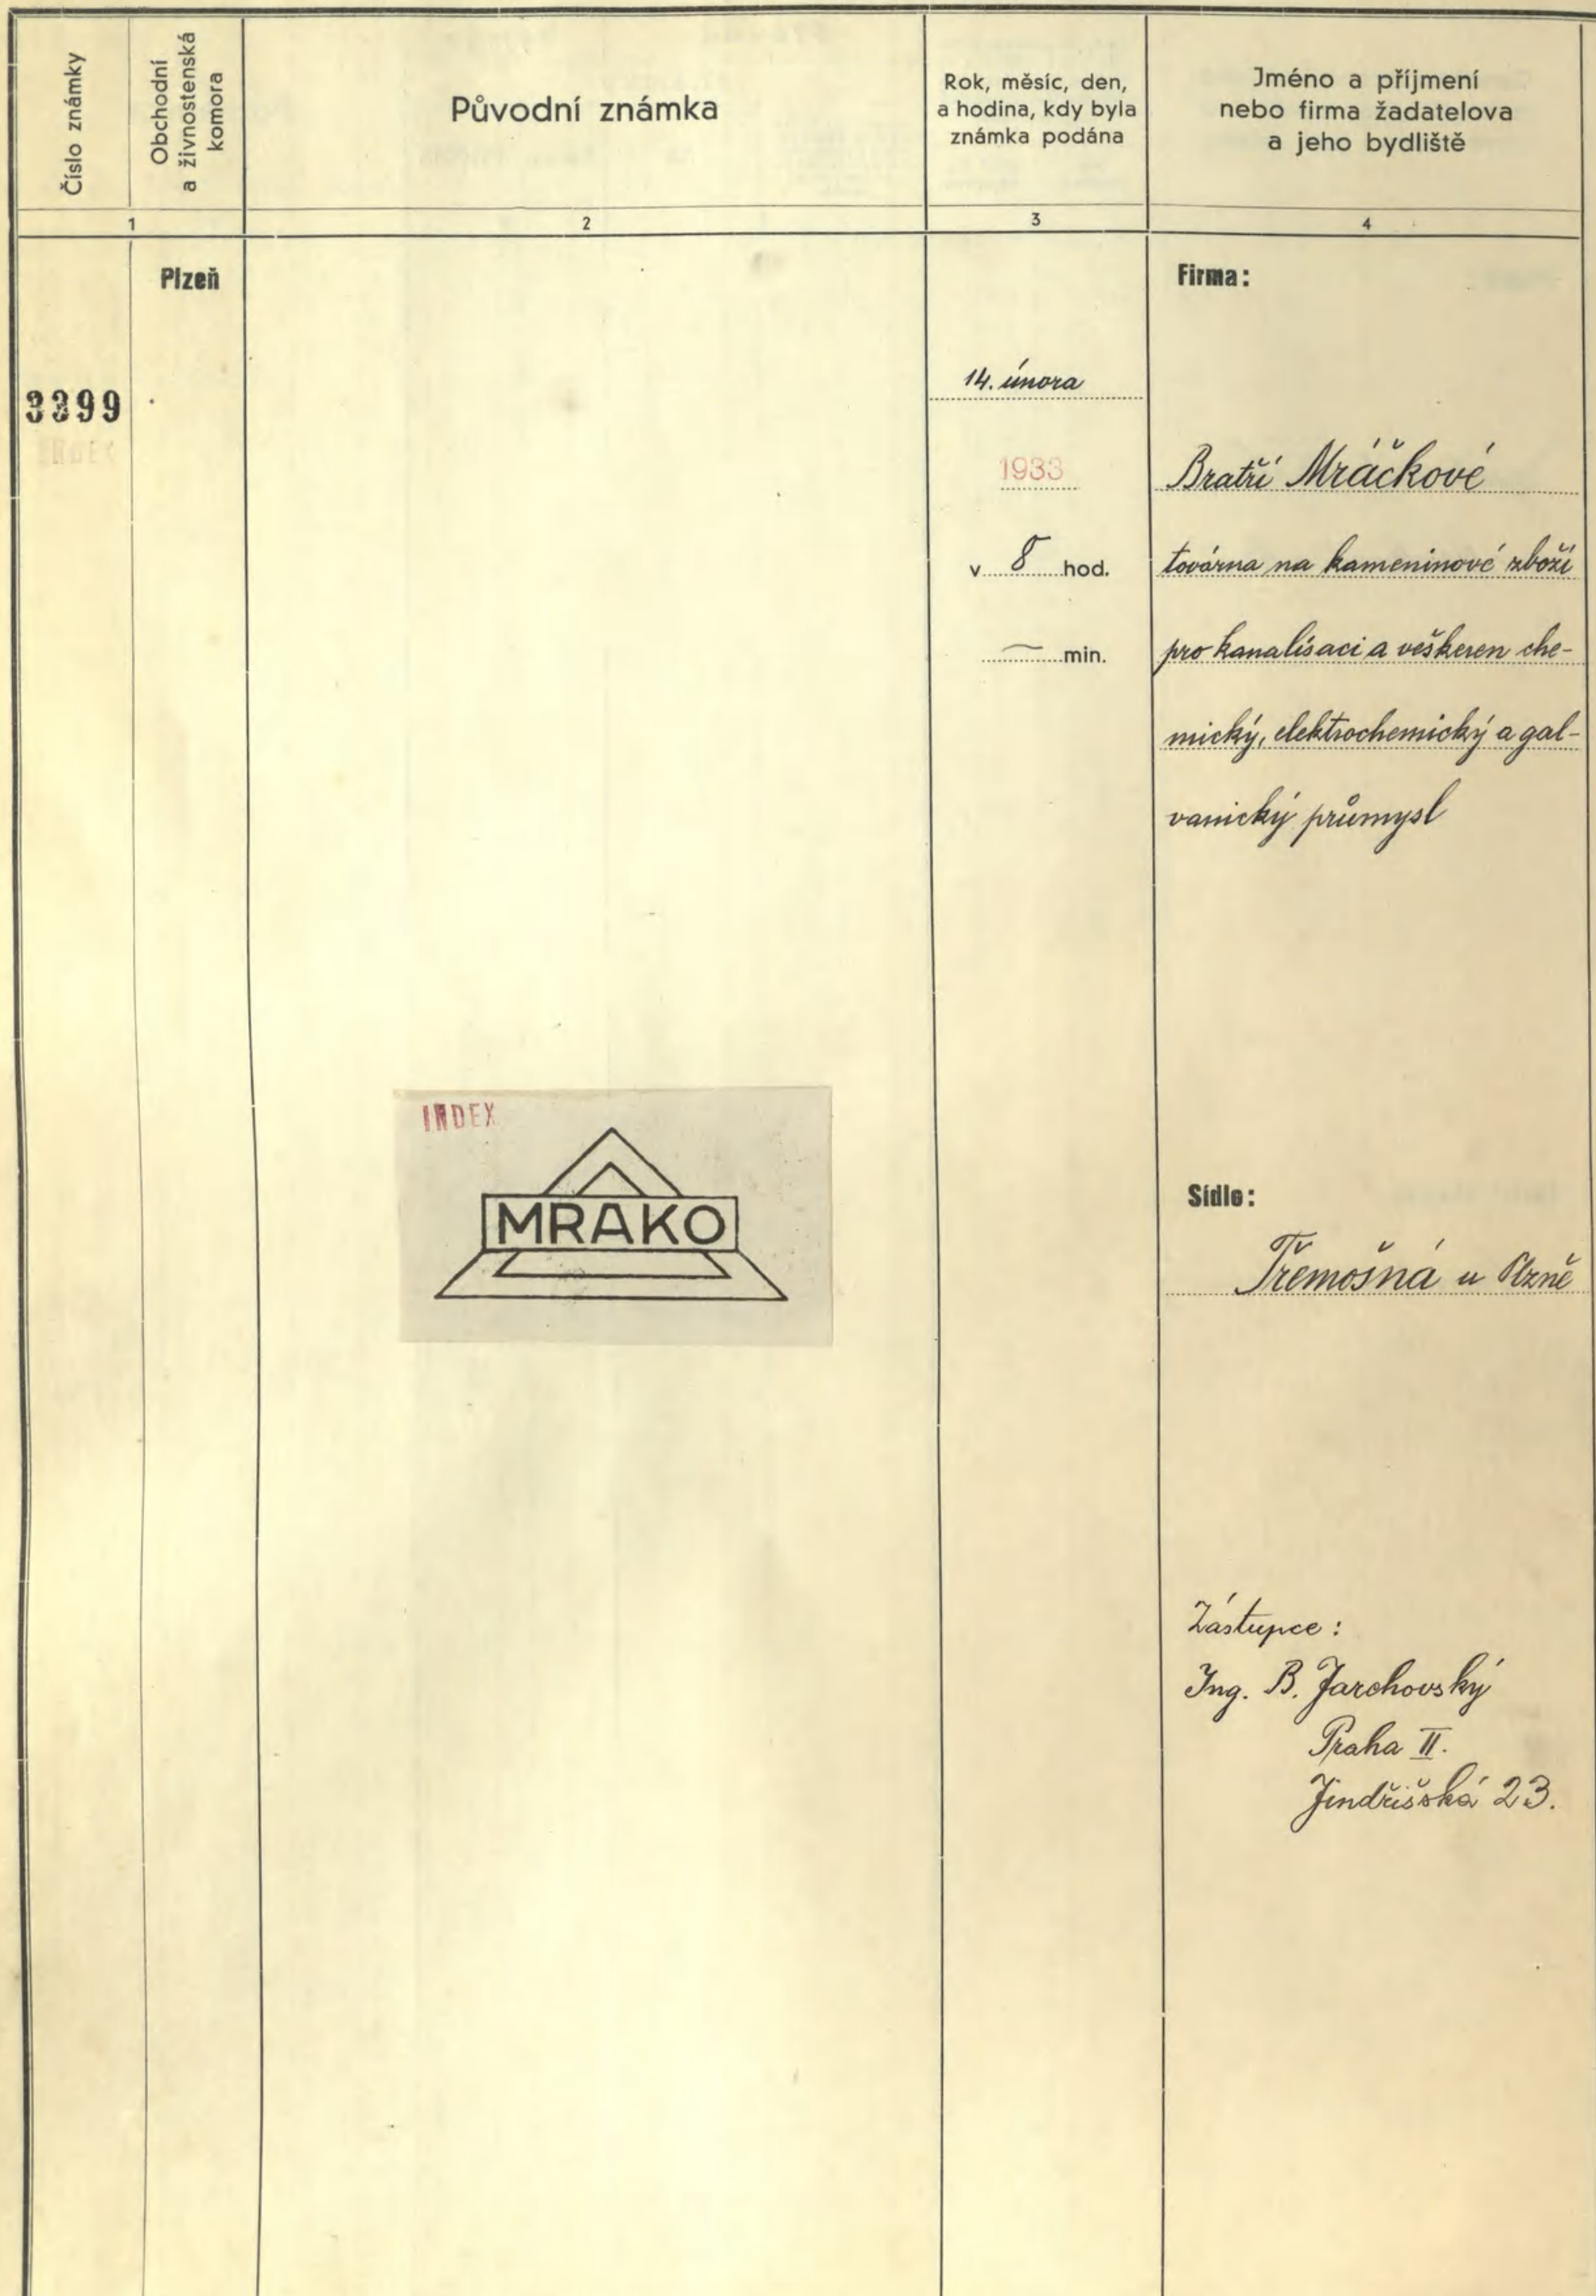 Číslo známky
Obchodní
a živnostenská
komora
Původní známka
Rok, měsíc, den,
a hodina, kdy byla
známka podána
Jméno a příjmení
nebo firma žadatelova
a jeho bydliště
1
2
3
4
Plzeň
3399
INDEX
14. února
1933
v 8 hod.
— min.
Firma:
Bratří Mráčkové
továrna na kameninové zboží
pro kanalisaci a veškeren che-
mický, elektrochemický a gal-
vanický průmysl
INDEX
MRAKO
Sídlo:
Třemošná u Plzně
Zástupce:
Ing. B. Jarchovský
Praha II.
Jindřišská 23.